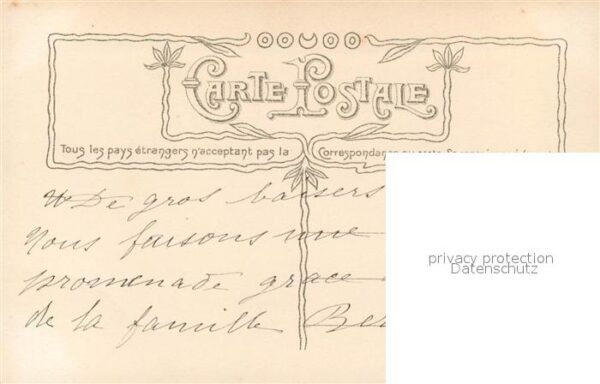 CARTE POSTALE
Tous les pays étrangers n'acceptant pas la Correspondance au
De gros baisers
Nous faisons une
promenade grace
de la famille Ber
privacy protection
Datenschutz